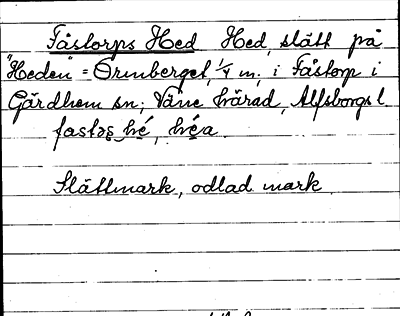 Fåstorps Hed Hed, slätt på
"Heden" = Ormberget, 1/4 m. i Fåstorp i
Gärdhem sn; Väne härad, Älfsborgs l
fastəs hé, héa.
Slättmark, odlad mark